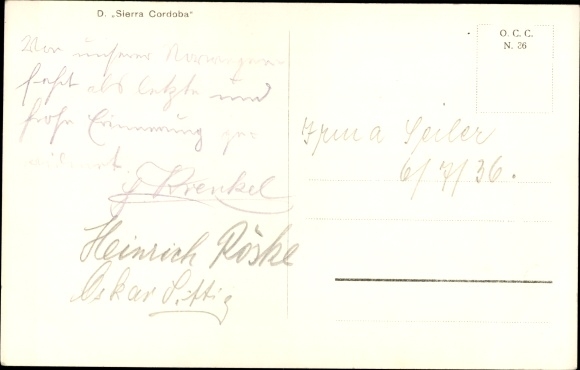 D. „Sierra Cordoba"
O. C. C.
N. 36
Von unserer Norwegen-
fahrt als letzte und
frohe Erinnerung ge-
widmet.
Krenkel
Heinrich Röske
Oskar Sittig
Irma Seiler
6/7/36.